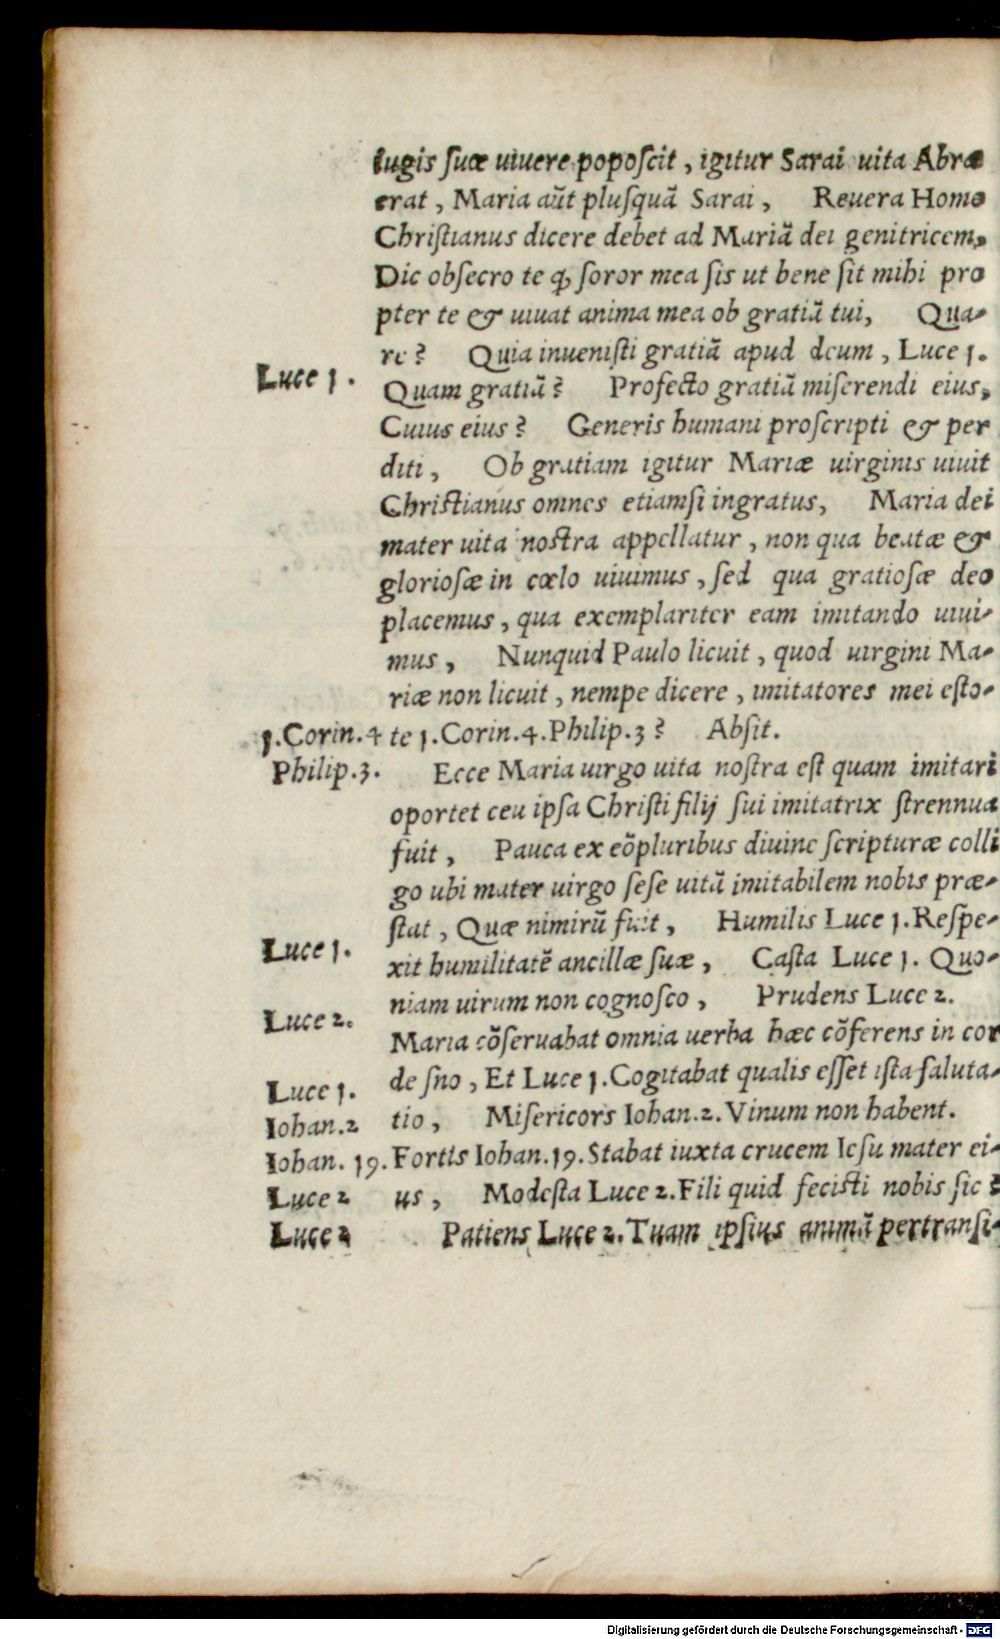 iugis suæ uiuere poposcit, igitur Sarai uita Abræ
erat, Maria aũt plusquã Sarai, Reuera Homo
Christianus dicere debet ad Mariã dei genitricem,
Dic obsecro te ꝙ soror mea sis ut bene sit mihi pro
pter te & uiuat anima mea ob gratiã tui, Qua-
re? Quia inuenisti gratiã apud deum, Luce 1.
Luce 1.
Quam gratiã? Profecto gratiã miserendi eius,
Cuius eius? Generis humani proscripti & per
diti, Ob gratiam igitur Mariæ uirginis uiuit
Christianus omnes etiamsi ingratus, Maria dei
mater uita nostra appellatur, non qua beatæ &
gloriosæ in cœlo uiuimus, sed qua gratiosæ deo
placemus, qua exemplariter eam imitando uiui-
mus, Nunquid Paulo licuit, quod uirgini Ma-
riæ non licuit, nempe dicere, imitatores mei esto-
1.Corin.4
te 1.Corin.4.Philip.3? Absit.
Philip.3.
Ecce Maria uirgo uita nostra est quam imitari
oportet ceu ipsa Christi filij sui imitatrix strennua
fuit, Pauca ex eõpluribus diuinę scripturæ colli
go ubi mater uirgo sese uitã imitabilem nobis præ-
stat, Quæ nimirũ fuit, Humilis Luce 1.Respe-
Luce 1.
xit humilitatẽ ancillæ suæ, Casta Luce 1. Quo-
niam uirum non cognosco, Prudens Luce 2.
Luce 2.
Maria cõseruabat omnia uerba hæc cõferens in cor
de sno, Et Luce 1.Cogitabat qualis esset ista saluta-
Luce 1.
Iohan.2
tio, Misericors Iohan.2.Vinum non habent.
Iohan. 19.
Fortis Iohan.19.Stabat iuxta crucem Iesu mater ei-
Luce 2
us, Modesta Luce 2.Fili quid fecisti nobis sic?
Luce 2
Patiens Luce 2.Tuam ipsius animã pertransi-
Digitalisierung gefördert durch die Deutsche Forschungsgemeinschaft - DFG